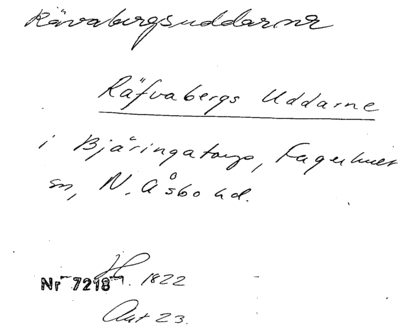 Rävabergsuddarna
Räfvabergs Uddarne
i Bjäringatorp, Fagerhult
sn, N. Åsbo hd.
H. 1822
Nr 7218
Akt 23.